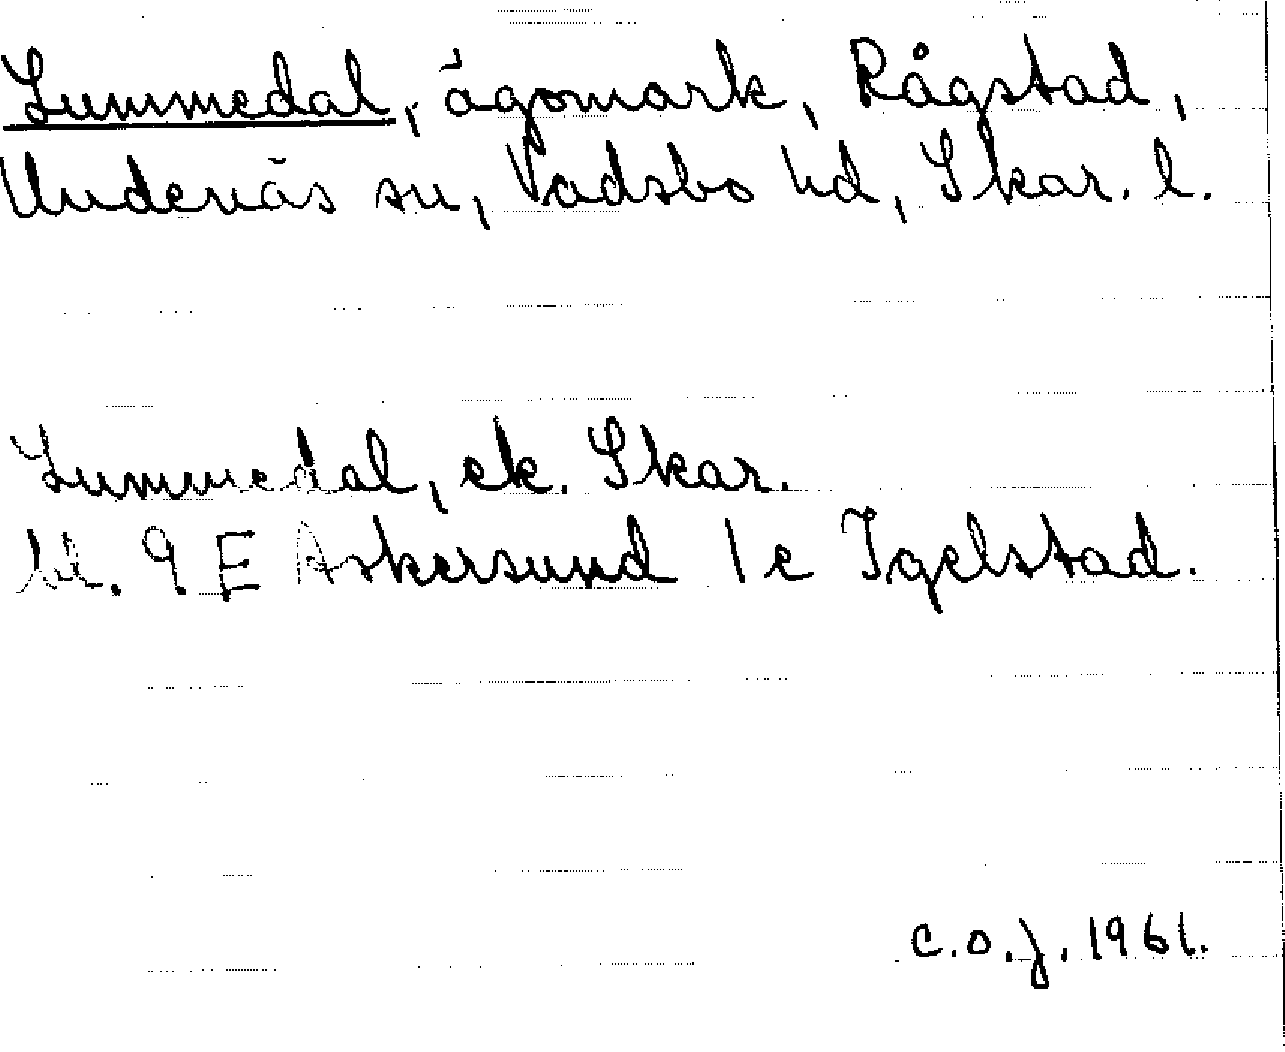 Lummedal, ägomark, Rågstad,
Undenäs sn, Vadsbo hd, Skar. l.
Lummedal, ek. Skar.
bl. 9 E Askersund 1 c Igelstad.
C.O.J. 1961.